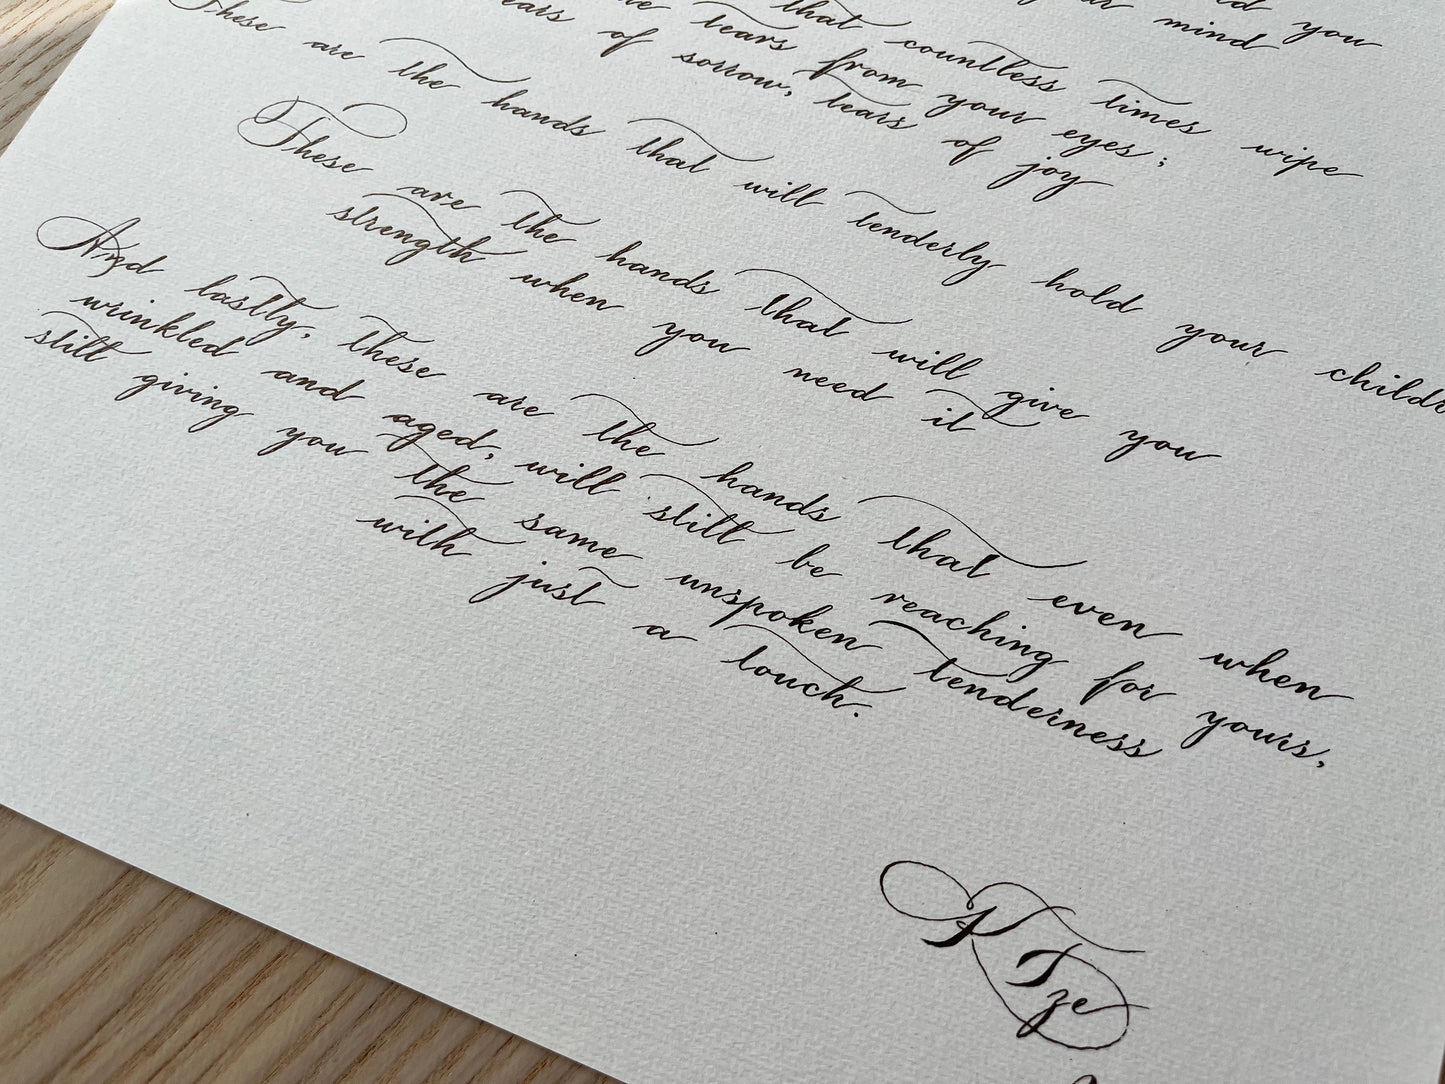 you
mind
that countless times wipe
tears from your eyes;
of sorrow, tears of joy
These are the hands that will tenderly hold your
These are the hands that will give you
strength when you need it
And lastly, these are the hands that even when
wrinkled and aged, will still be reaching for yours,
still giving you the same unspoken tenderness
with just a touch.
Tze